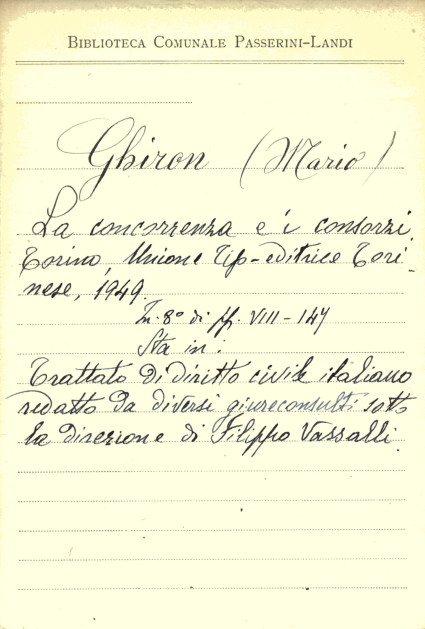 BIBLIOTECA COMUNALE PASSERINI-LANDI
Ghiron (Mario)
La concorrenza e i consorzi.
Torino, Unione Tip-editrice Tori-
nese, 1949.
In 8° di pp. VIII-147
Sta in:
Trattato di diritto civile italiano
redatto da diversi giureconsulti sotto
la direzione di Filippo Vassalli.